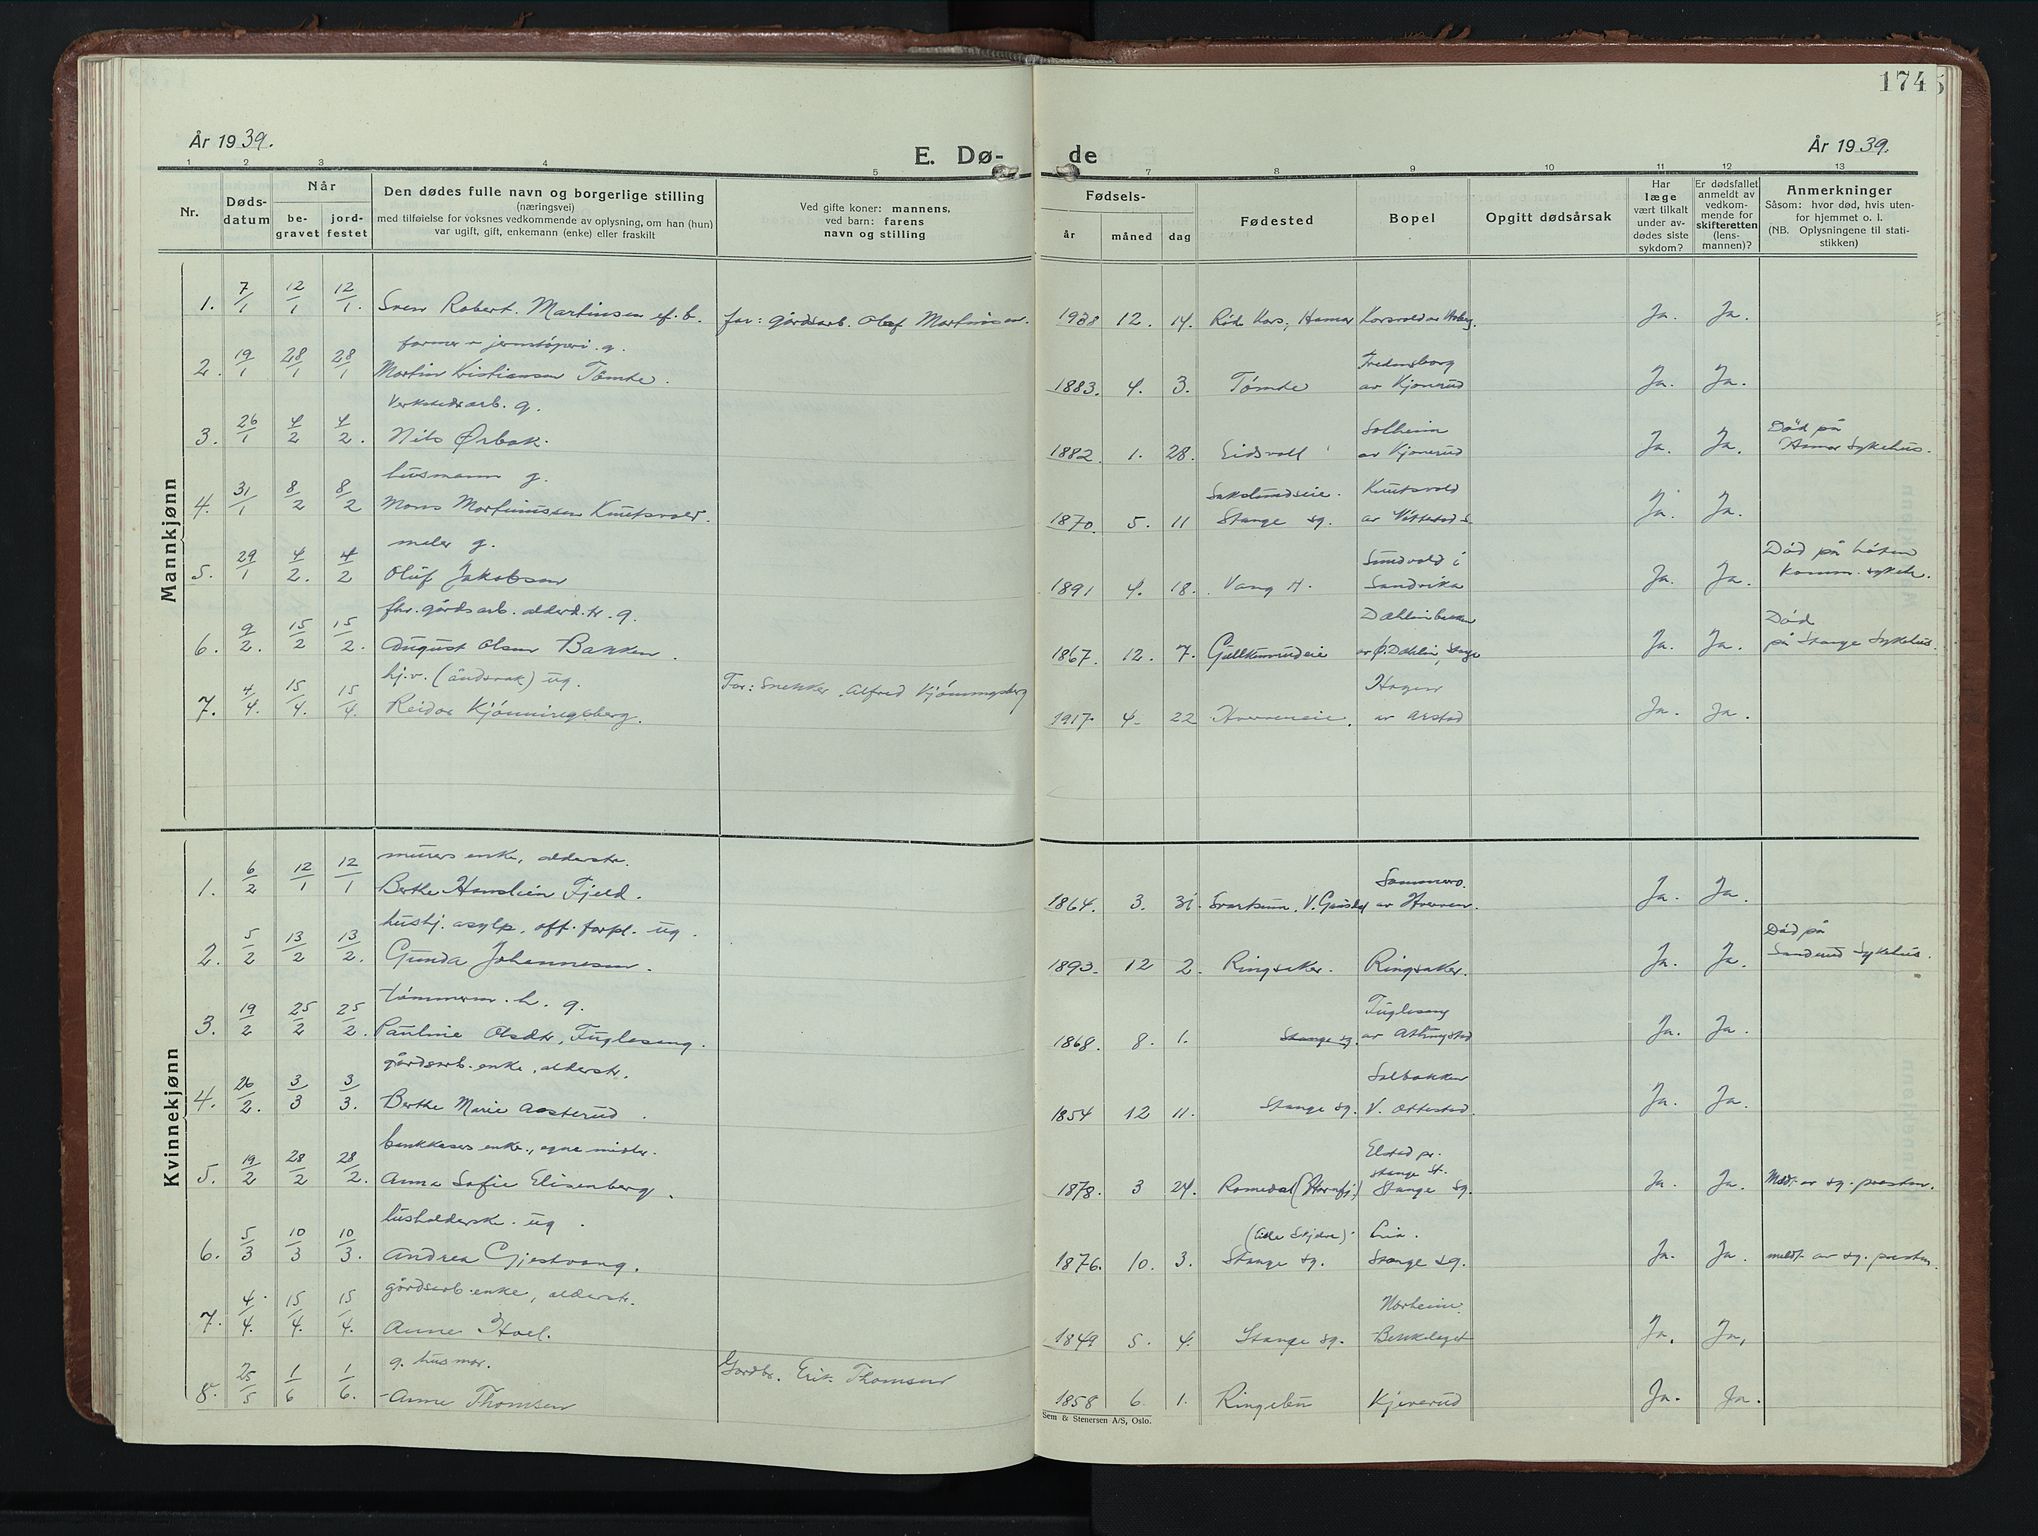 174
År 1939.
E. Dø-
de
År 1939.
1 2 3 4 5 7 8 9 10 11 12 13
Nr.
Døds-
datum
Når
be-
gravet
jord-
festet
Den dødes fulle navn og borgerlige stilling
(næringsvei)
med tilføielse for voksnes vedkommende av oplysning, om han (hun)
var ugift, gift, enkemann (enke) eller fraskilt
Ved gifte koner: mannens,
ved barn: farens
navn og stilling
Fødsels-
år måned dag
Fødested
Bopel
Opgitt dødsårsak
Har
læge
vært tilkalt
under av-
dødes siste
sykdom?
Er dødsfallet
anmeldt av
vedkom-
mende for
skifteretten
(lens-
mannen)?
Anmerkninger
Såsom: hvor død, hvis uten-
for hjemmet o. l.
(NB. Oplysningene til stati-
stikken)
Mannkjønn
1. 7/1 12/1 12/1. Sven Robert. Martinsen ef. b. far: gårdsarb. Olaf Martinsen. 1938 12. 14. Røde Kors, Hamar Ja. Ja.
former v jernstøperi. g. Fredensborg
2. 19/1 28/1 28/1 Martin Kristiansen Tømte. 1883. 4. 3. Tømte av Kjonerud Ja. Ja.
Verkstedsarb. g. Solheim Død på
3. 26/1 4/2 4/2. Nils Ørbak. 1882. 1. 28. Eidsvoll av Kjonerud Ja. Ja. Hamar Sykehus.
husmann g. Knutsvold
4. 31/1 8/2 8/2 Mons Martinussen Knutsvold. 1870. 5. 11 Stange sg. Ja. Ja.
maler g. Sundvold i Død på Løten
5. 29/1 4/2. 4/2 Oluf Jakobsen 1891 4. 18. Vang H. Sandvika Ja. Ja. Komm. sykeh.
fhv. gårdsarb. alderd.tr. g. Død
6. 9/2. 15/2 15/2. August Olsen Bakken. 1867. 12. 7. Ja. Ja. på Stange Sykehus.
hj.v. (åndsvak) ug. Far: Snekker. Alfred Kjønningsberg Hagen
7. 4/4. 15/4. 15/4. Reidar Kjønningsberg. 1917. 4. 22 av Arstad Ja. Ja.
Kvinnekjønn
murers enke, alderstr.
1. 6/2 12/1 12/1 Berthe Hanslien Fjeld. 1864. 3. 31. Ja. Ja.
hushj. asylp. off. forpl. ug. Død på
2. 5/2 13/2 13/2. Gunda Johannesen. 1893. 12 2. Ringsaker. Ringsaker. Ja. Ja. Sanderud Sykehus.
tømmerm. h. g. Fuglesang
3. 19/2 25/2 25/2. Pauline Olsdtr. Fuglesang. 1868. 8. 1. Stange sg. Ja. Ja.
gårdsarb. enke, alderstr. Solbakken
4. 26/2. 3/3 3/3. Berthe Marie Aasterud. 1854 12 11. Stange sg. V. Ottestad. Ja. Ja.
enke, egne midler. Elstad pr. Stange St.
5. 19/2 28/2 28/2. Anna Sofie Elisenberg. 1878. 3 24. Romedal Stange sg. Ja. Ja. Medt. av sg. presten.
husholderske. ug. Lia.
6. 5/3 10/3 10/3. Andrea Gjestvang. 1876. 10. 3. Stange sg. Stange sg. Ja. Ja. meldt. av sg. presten.
gårdsarb. enke, alderstr. Norheim
7. 4/4. 15/4. 15/4. Anne Hoel. 1849 5. 4. Stange sg. Ja. Ja.
g. husmor. Gårdbr. Erik Thomsen
8. 25/5 1/6 1/6. Anne Thomsen 1858 6. 1. Ringebu Kjenerud Ja. Ja.
Sem & Stenersen A/S, Oslo.